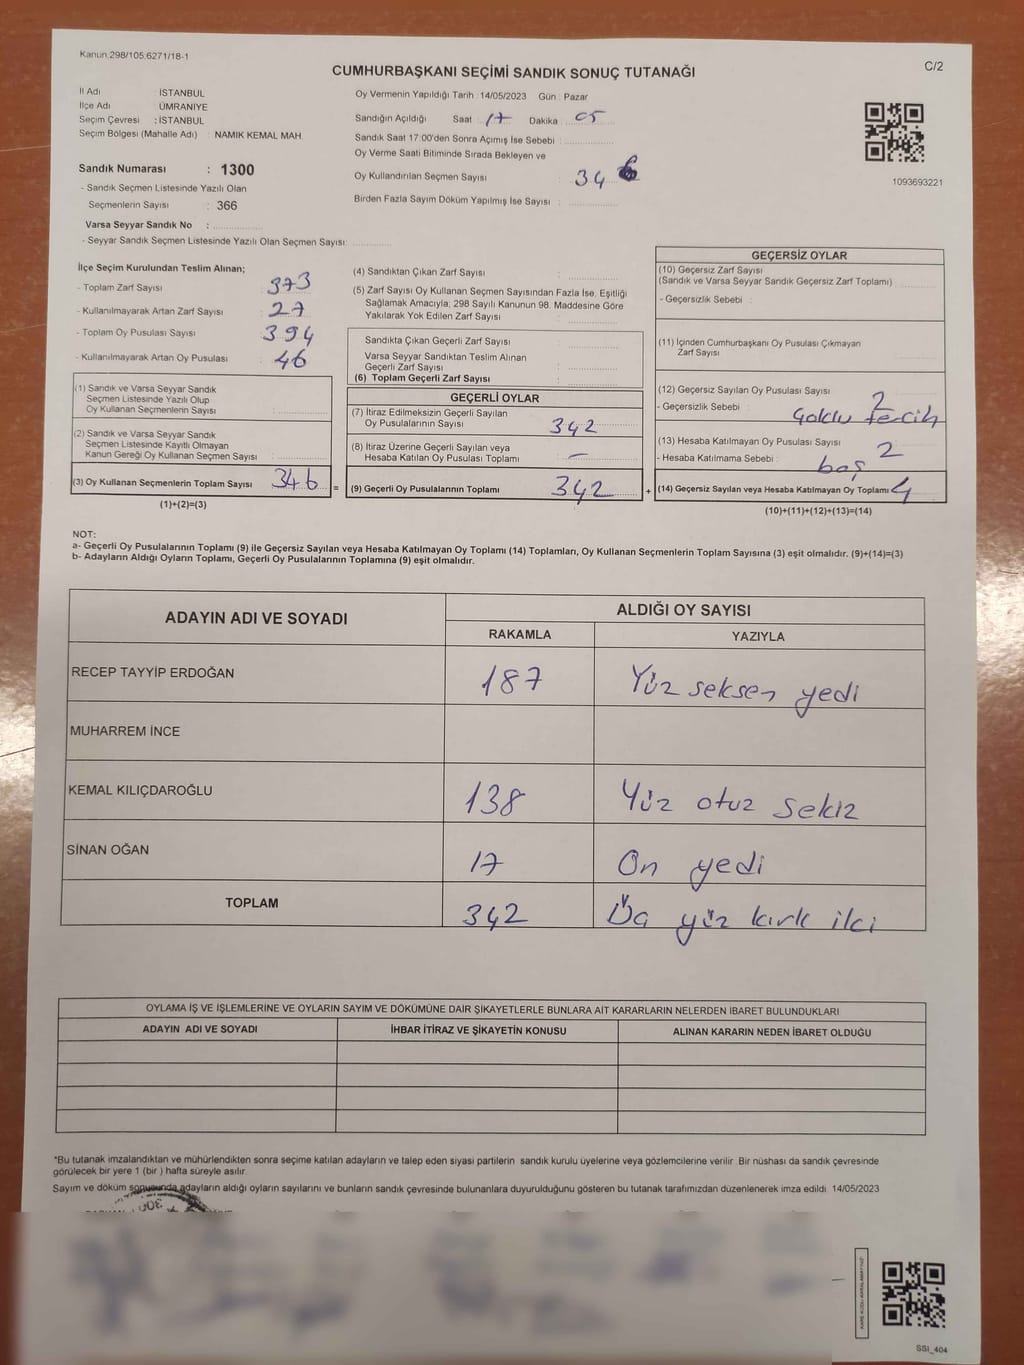 Kanun 298/105.6271/18-1
C/2
CUMHURBAŞKANI SEÇİMİ SANDIK SONUÇ TUTANAĞI
İl Adı İSTANBUL
İlçe Adı ÜMRANİYE
Seçim Çevresi : İSTANBUL
Seçim Bölgesi (Mahalle Adı) : NAMIK KEMAL MAH.
Sandık Numarası : 1300
- Sandık Seçmen Listesinde Yazılı Olan
Seçmenlerin Sayısı : 366
Varsa Seyyar Sandık No :
- Seyyar Sandık Seçmen Listesinde Yazılı Olan Seçmen Sayısı:
Oy Vermenin Yapıldığı Tarih : 14/05/2023 Gün : Pazar
Sandığın Açıldığı Saat 17 Dakika 05
Sandık Saat 17:00'den Sonra Açımış İse Sebebi :
Oy Verme Saati Bitiminde Sırada Bekleyen ve
Oy Kullandırılan Seçmen Sayısı : 346
Birden Fazla Sayım Döküm Yapılmış İse Sayısı :
1093693221
İlçe Seçim Kurulundan Teslim Alınan;
- Toplam Zarf Sayısı 373
- Kullanılmayarak Artan Zarf Sayısı : 27
- Toplam Oy Pusulası Sayısı : 394
- Kullanılmayarak Artan Oy Pusulası : 46
(1) Sandık ve Varsa Seyyar Sandık
Seçmen Listesinde Yazılı Olup
Oy Kullanan Seçmenlerin Sayısı :
(2) Sandık ve Varsa Seyyar Sandık
Seçmen Listesinde Kayıtlı Olmayan
Kanun Gereği Oy Kullanan Seçmen Sayısı :
(3) Oy Kullanan Seçmenlerin Toplam Sayısı 346 =
(1)+(2)=(3)
(4) Sandıktan Çıkan Zarf Sayısı :
(5) Zarf Sayısı Oy Kullanan Seçmen Sayısından Fazla İse, Eşitliği
Sağlamak Amacıyla; 298 Sayılı Kanunun 98. Maddesine Göre
Yakılarak Yok Edilen Zarf Sayısı :
Sandıkta Çıkan Geçerli Zarf Sayısı :
Varsa Seyyar Sandıktan Teslim Alınan
Geçerli Zarf Sayısı :
(6) Toplam Geçerli Zarf Sayısı :
GEÇERLİ OYLAR
(7) İtiraz Edilmeksizin Geçerli Sayılan
Oy Pusulalarının Sayısı : 342
(8) İtiraz Üzerine Geçerli Sayılan veya
Hesaba Katılan Oy Pusulası Toplamı : -
(9) Geçerli Oy Pusulalarının Toplamı 342 +
GEÇERSİZ OYLAR
(10) Geçersiz Zarf Sayısı
(Sandık ve Varsa Seyyar Sandık Geçersiz Zarf Toplamı)
- Geçersizlik Sebebi :
(11) İçinden Cumhurbaşkanı Oy Pusulası Çıkmayan
Zarf Sayısı
(12) Geçersiz Sayılan Oy Pusulası Sayısı 2
- Geçersizlik Sebebi : Çoklu tercih
(13) Hesaba Katılmayan Oy Pusulası Sayısı 2
- Hesaba Katılmama Sebebi : boş
(14) Geçersiz Sayılan veya Hesaba Katılmayan Oy Toplamı 4
(10)+(11)+(12)+(13)=(14)
NOT:
a- Geçerli Oy Pusulalarının Toplamı (9) ile Geçersiz Sayılan veya Hesaba Katılmayan Oy Toplamı (14) Toplamları, Oy Kullanan Seçmenlerin Toplam Sayısına (3) eşit olmalıdır. (9)+(14)=(3)
b- Adayların Aldığı Oyların Toplamı, Geçerli Oy Pusulalarının Toplamına (9) eşit olmalıdır.
ADAYIN ADI VE SOYADI ALDIĞI OY SAYISI
RAKAMLA YAZIYLA
RECEP TAYYİP ERDOĞAN 187 Yüz seksen yedi
MUHARREM İNCE
KEMAL KILIÇDAROĞLU 138 Yüz otuz sekiz
SİNAN OĞAN 17 On yedi
TOPLAM 342 Üç yüz kırk iki
OYLAMA İŞ VE İŞLEMLERİNE VE OYLARIN SAYIM VE DÖKÜMÜNE DAİR ŞİKAYETLERLE BUNLARA AİT KARARLARIN NELERDEN İBARET BULUNDUKLARI
ADAYIN ADI VE SOYADI İHBAR İTİRAZ VE ŞİKAYETİN KONUSU ALINAN KARARIN NEDEN İBARET OLDUĞU
*Bu tutanak imzalandıktan ve mühürlendikten sonra seçime katılan adayların ve talep eden siyasi partilerin sandık kurulu üyelerine veya gözlemcilerine verilir. Bir nüshası da sandık çevresinde
görülecek bir yere 1 (bir ) hafta süreyle asılır.
Sayım ve döküm sonucunda adayların aldığı oyların sayılarını ve bunların sandık çevresinde bulunanlara duyurulduğunu gösteren bu tutanak tarafımızdan düzenlenerek imza edildi. 14/05/2023
KARE KODU KARALAMAYINIZ
SSI_404